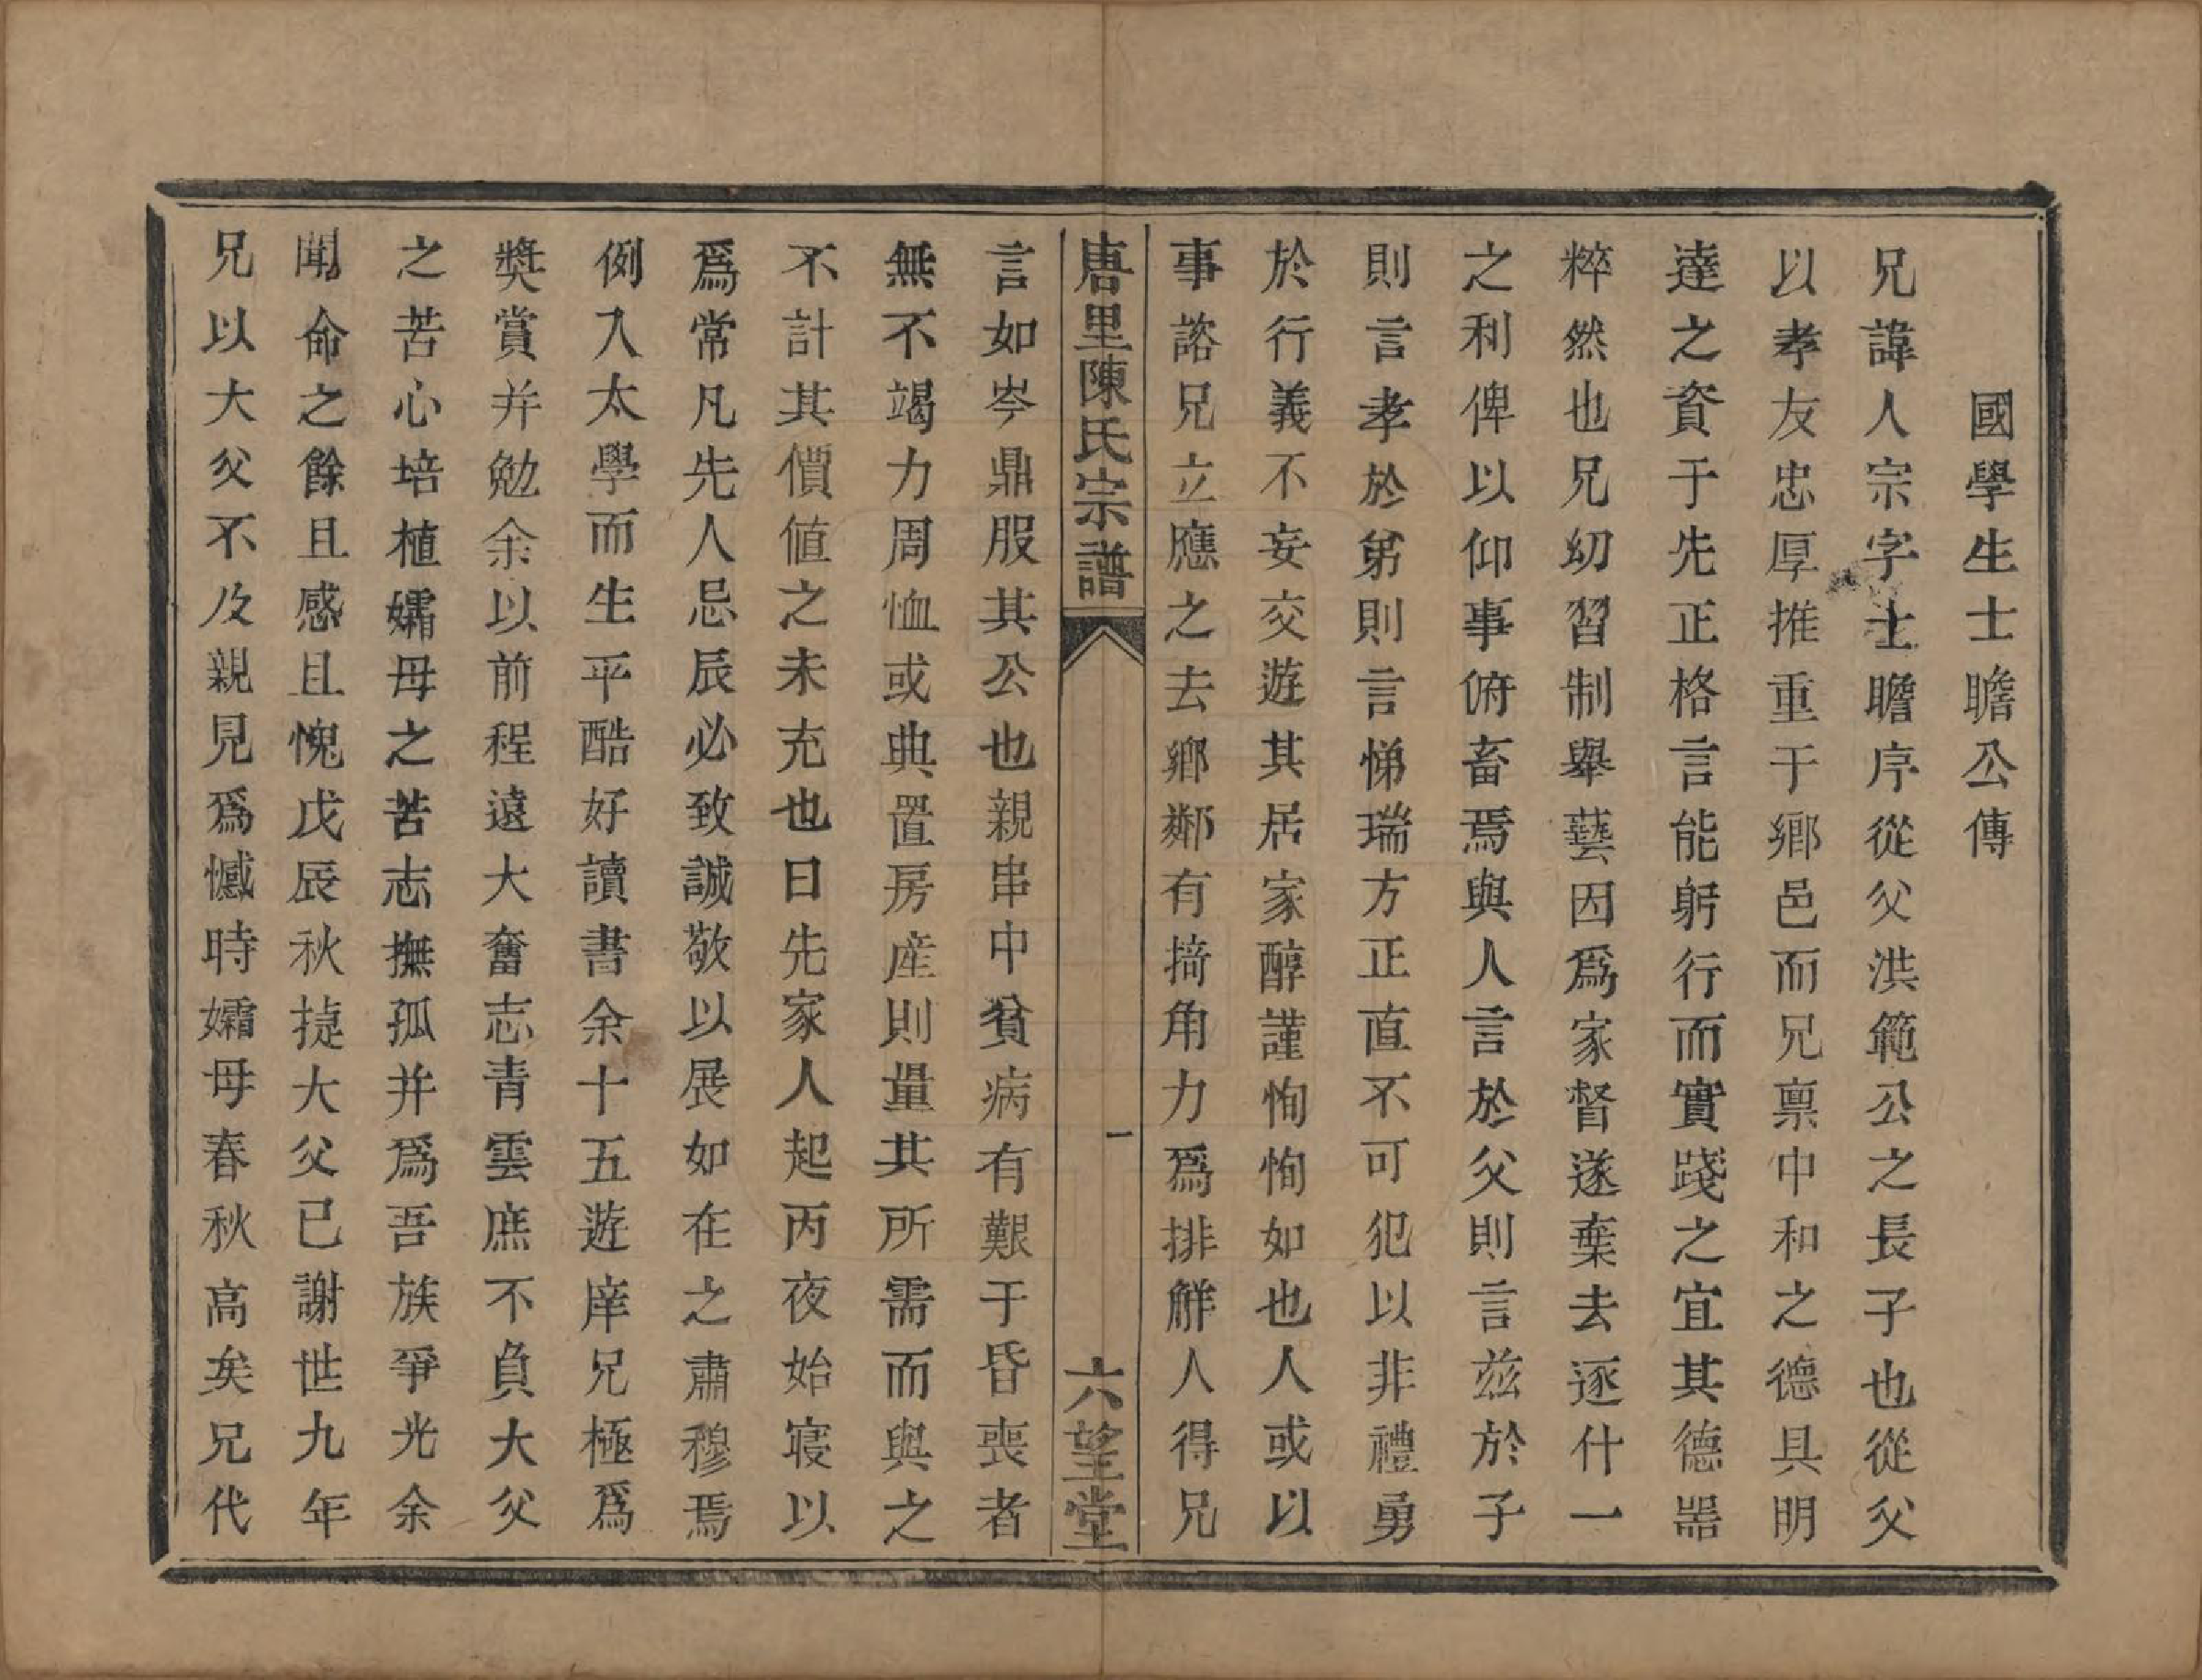 國學生士瞻公傳
兄諱人宗字士瞻序從父洪範公之長子也從父
以孝友忠厚推重于鄉邑而兄禀中和之德具明
達之資于先正格言能躬行而實踐之宜其德器
粹然也兄幼習制舉藝因爲家督遂棄去逐什一
之利俾以仰事俯畜焉與人言於父則言兹於子
則言孝於弟則言悌瑞方正直不可犯以非禮勇
於行義不妄交遊其居家醇謹恂恂如也人或以
事諮兄立應之去鄉鄰有掎角力爲排觧人得兄
唐里陳氏宗譜 一 六望堂
言如岑鼎服其公也親串中貧病有艱于昏喪者
無不竭力周恤或典置房産則量其所需而與之
不計其價値之未充也曰先家人起丙夜始寝以
爲常凡先人忌辰必致誠敬以展如在之肅穆焉
例入太學而生平酷好讀書余十五遊庠兄極爲
獎賞并勉余以前程遠大奮志青雲庶不負大父
之苦心培植孀母之苦志撫孤并爲吾族爭光余
聞命之餘且感且愧戊辰秋捷大父已謝世九年
兄以大父不及親見爲憾時孀母春秋高矣兄代